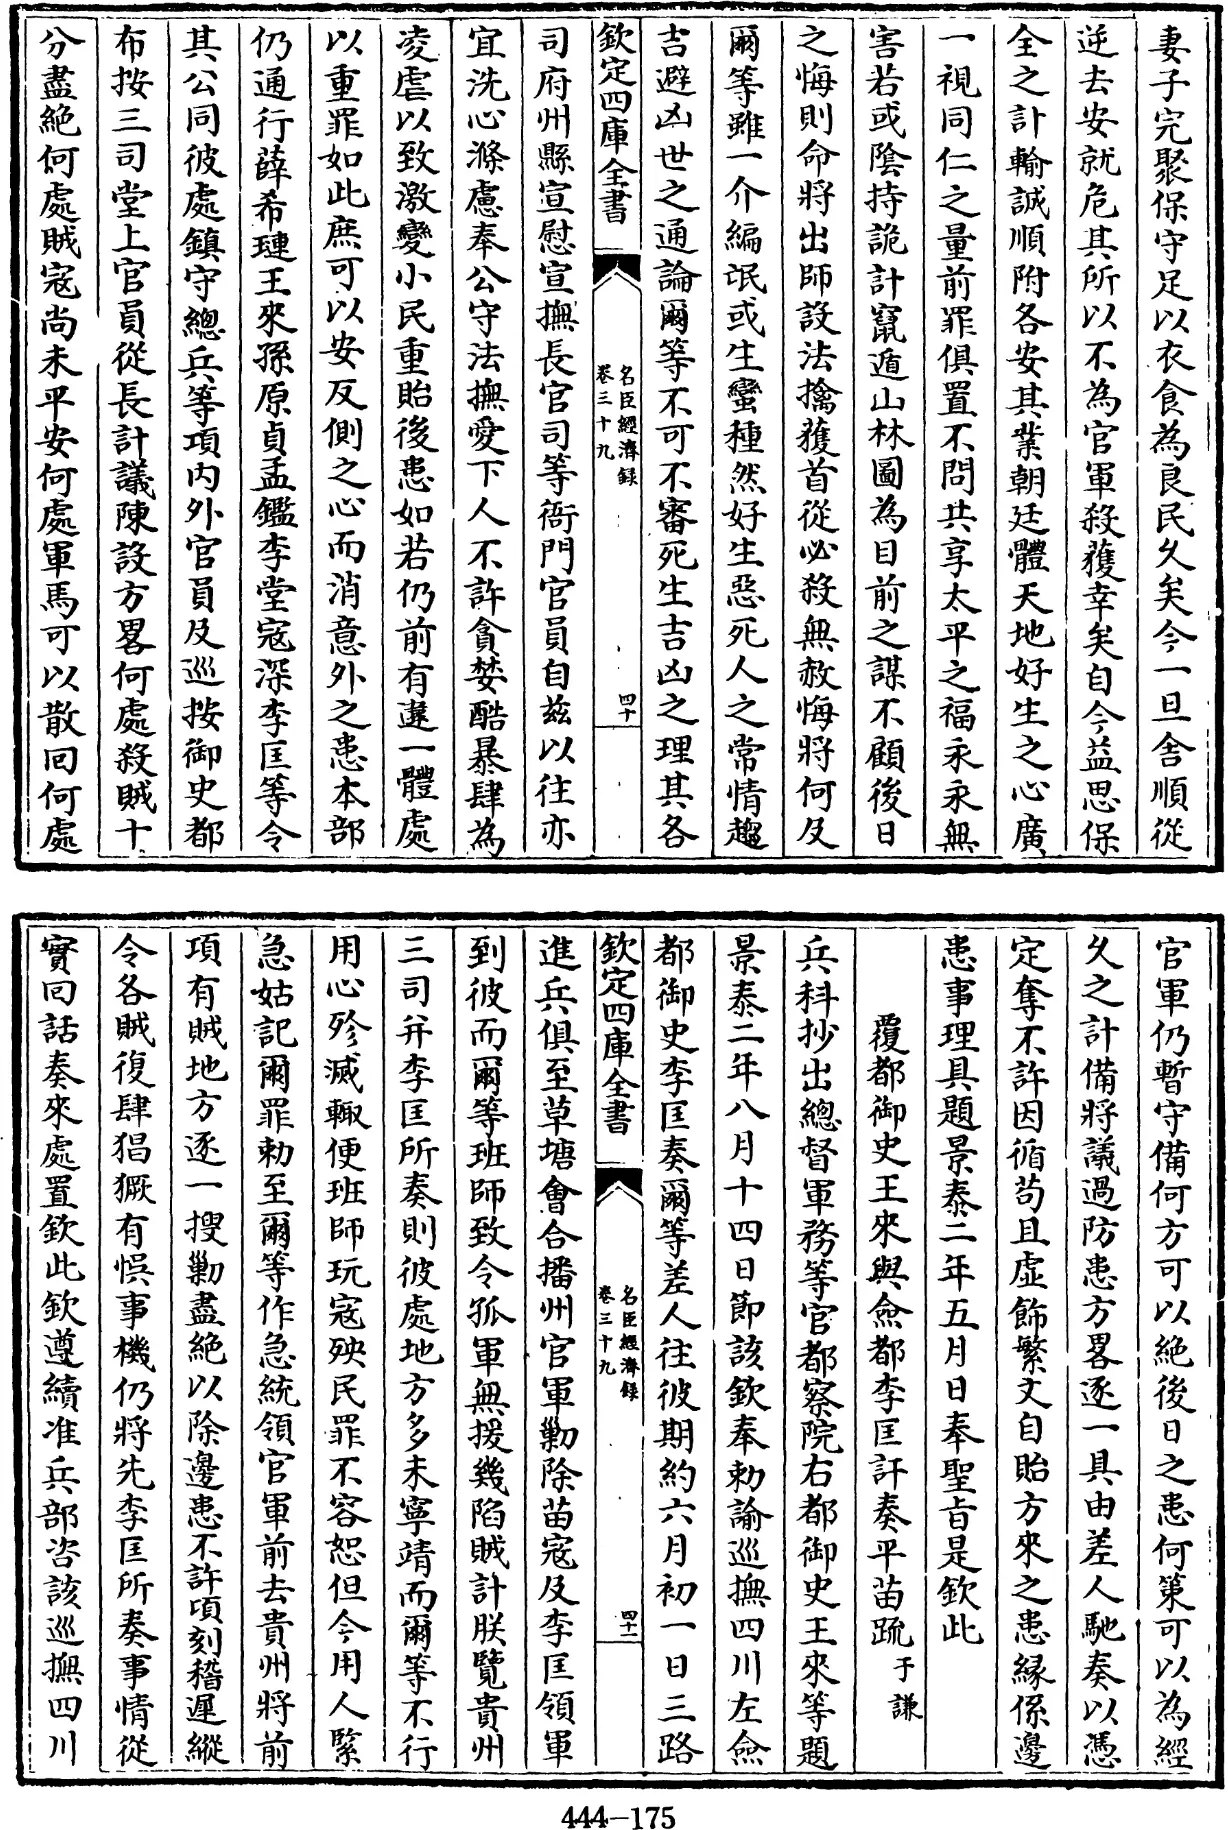 妻子完聚保守足以衣食為良民久矣今一旦舍順從
逆去安就危其所以不為官軍殺獲幸矣自今益思保
全之計輸誠順附各安其業朝廷體天地好生之心廣
一視同仁之量前罪俱置不問共享太平之福永永無
害若或陰持詭計竄遁山林圖為目前之謀不顧後日
之悔則命將出師設法擒獲首從必殺無赦悔將何及
爾等雖一介編氓或生蠻種然好生惡死人之常情趨
吉避凶世之通論爾等不可不審死生吉凶之理其各
欽定四庫全書
名臣經濟録
卷三十九
四十
司府州縣宣慰宣撫長官司等衙門官員自兹以往亦
宜洗心滌慮奉公守法撫愛下人不許貪婪酷暴肆為
凌虐以致激變小民重貽後患如若仍前有違一體處
以重罪如此庶可以安反側之心而消意外之患本部
仍通行薛希璉王來孫原貞孟鑑李堂寇深李匡等令
其公同彼處鎮守總兵等項内外官員及巡按御史都
布按三司堂上官員從長計議陳設方畧何處殺賊十
分盡絶何處賊寇尚未平安何處軍馬可以散回何處
官軍仍暫守備何方可以絶後日之患何策可以為經
久之計備將議過防患方畧逐一具由差人馳奏以憑
定奪不許因循苟且虚飾繁文自貽方來之患縁係邊
患事理具題景泰二年五月日奉聖旨是欽此
覆都御史王來與僉都李匡訐奏平苗疏 于謙
兵科抄出總督軍務等官都察院右都御史王來等題
景泰二年八月十四日節該欽奉勅諭巡撫四川左僉
都御史李匡奏爾等差人往彼期約六月初一日三路
欽定四庫全書
名臣經濟録
卷三十九
四十一
進兵俱至草塘會合播州官軍勦除苗寇及李匡領軍
到彼而爾等班師致令孤軍無援幾陷賊計朕覽貴州
三司并李匡所奏則彼處地方多未寧靖而爾等不行
用心殄滅輙便班師玩寇殃民罪不容恕但今用人緊
急姑記爾罪勅至爾等作急統領官軍前去貴州將前
項有賊地方逐一搜勦盡絶以除邊患不許頃刻稽遲縱
令各賊復肆猖獗有悞事機仍將先李匡所奏事情從
實回話奏來處置欽此欽遵續准兵部咨該巡撫四川
444-175